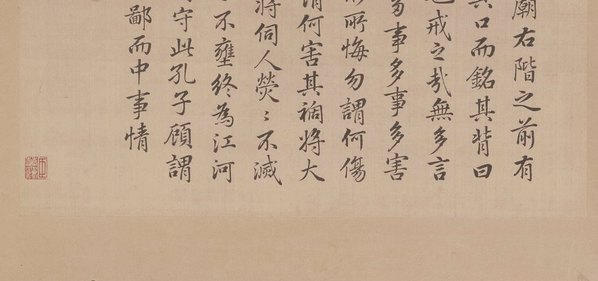 廟右階之前有
其口而銘其背曰
戒之哉無多言
事多事多害
所悔勿謂何傷
何害其禍將大
將伺人熒〻不滅
不壅終為江河
守此孔子顧謂
鄙而中事情